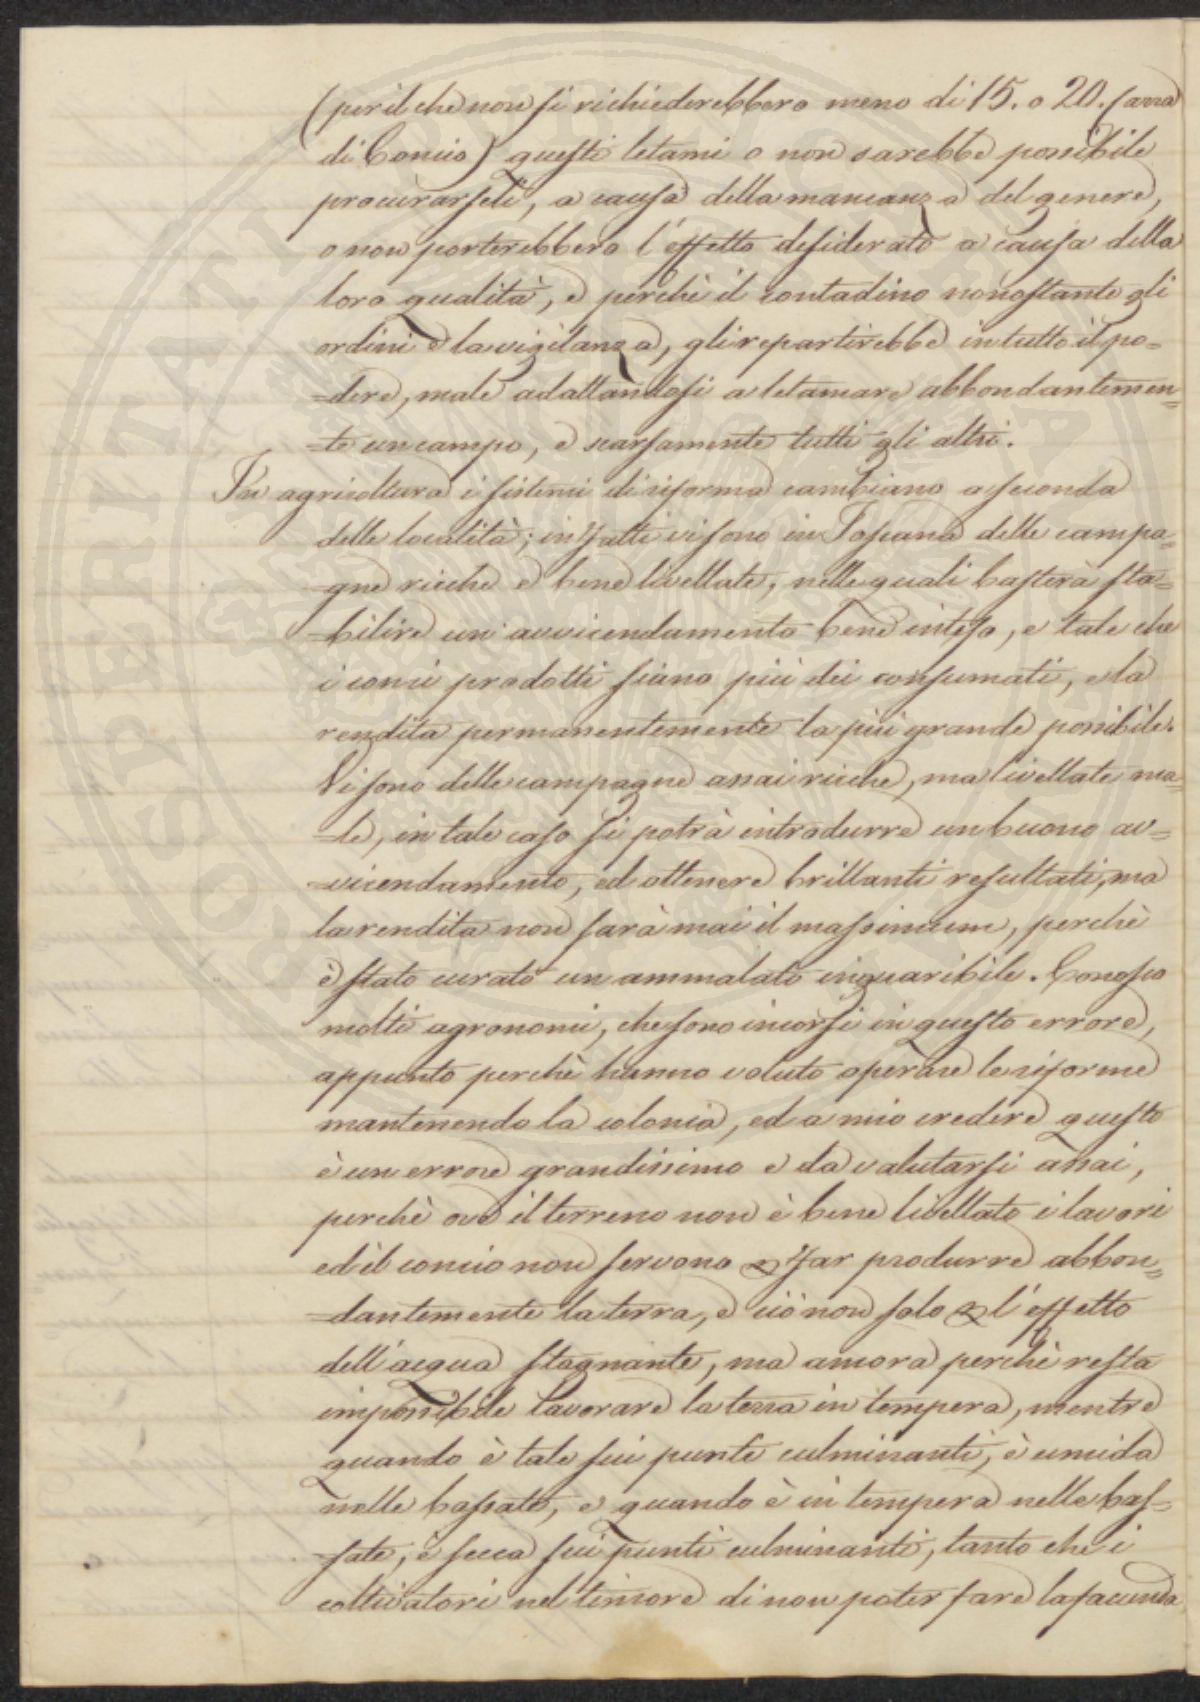 (per il che non si richiederebbero meno di 15. o 20. carra
di Concio) questi letami o non sarebbe possibile
procurarseli, a causa della mancanza del genere,
o non porterebbero l'effetto desiderato a causa della
loro qualità, e perchè il contadino nonostante gli
ordini e la vigilanza, gli repartirebbe in tutto il po=
=dere, male adattandosi a letamare abbondantemen=
=te un campo, e scarsamente tutti gli altri.
In agricoltura i sistemi di riforma cambiano a seconda
delle località; infatti vi sono in Toscana delle campa=
=gne ricche e bene livellate, nelle quali basterà sta=
=bilire un' avvicendamento bene inteso, e tale che
i conci prodotti siano più dei consumati, e la
rendita permanentemente la più grande possibile.
Vi sono delle campagne assai ricche, ma livellate ma=
=le, in tale caso si potrà introdurre un buono av=
=vicendamento, ed ottenere brillanti resultati, ma
la rendita non sarà mai il massimum, perchè
è stato curato un ammalato inguaribile. Conosco
molti agronomi, che sono incorsi in questo errore,
appunto perchè hanno voluto operare le riforme
mantenendo la colonia, ed a mio credere questo
è un errore grandissimo e da valutarsi assai,
perchè ove il terreno non è bene livellato i lavori
ed il concio non servono a far produrre abbon=
=dantemente la terra, e ciò non solo per l'effetto
dell'acqua stagnante, ma ancora perchè resta
impossibile lavorare la terra in tempera, mentre
quando è tale sui punti culminanti, è umida
nelle bassate, e quando è in tempera nelle bas=
=sate, è secca sui punti culminanti, tanto che i
coltivatori nel timore di non poter fare la facenda
SOSPERITATI PUBLICAE